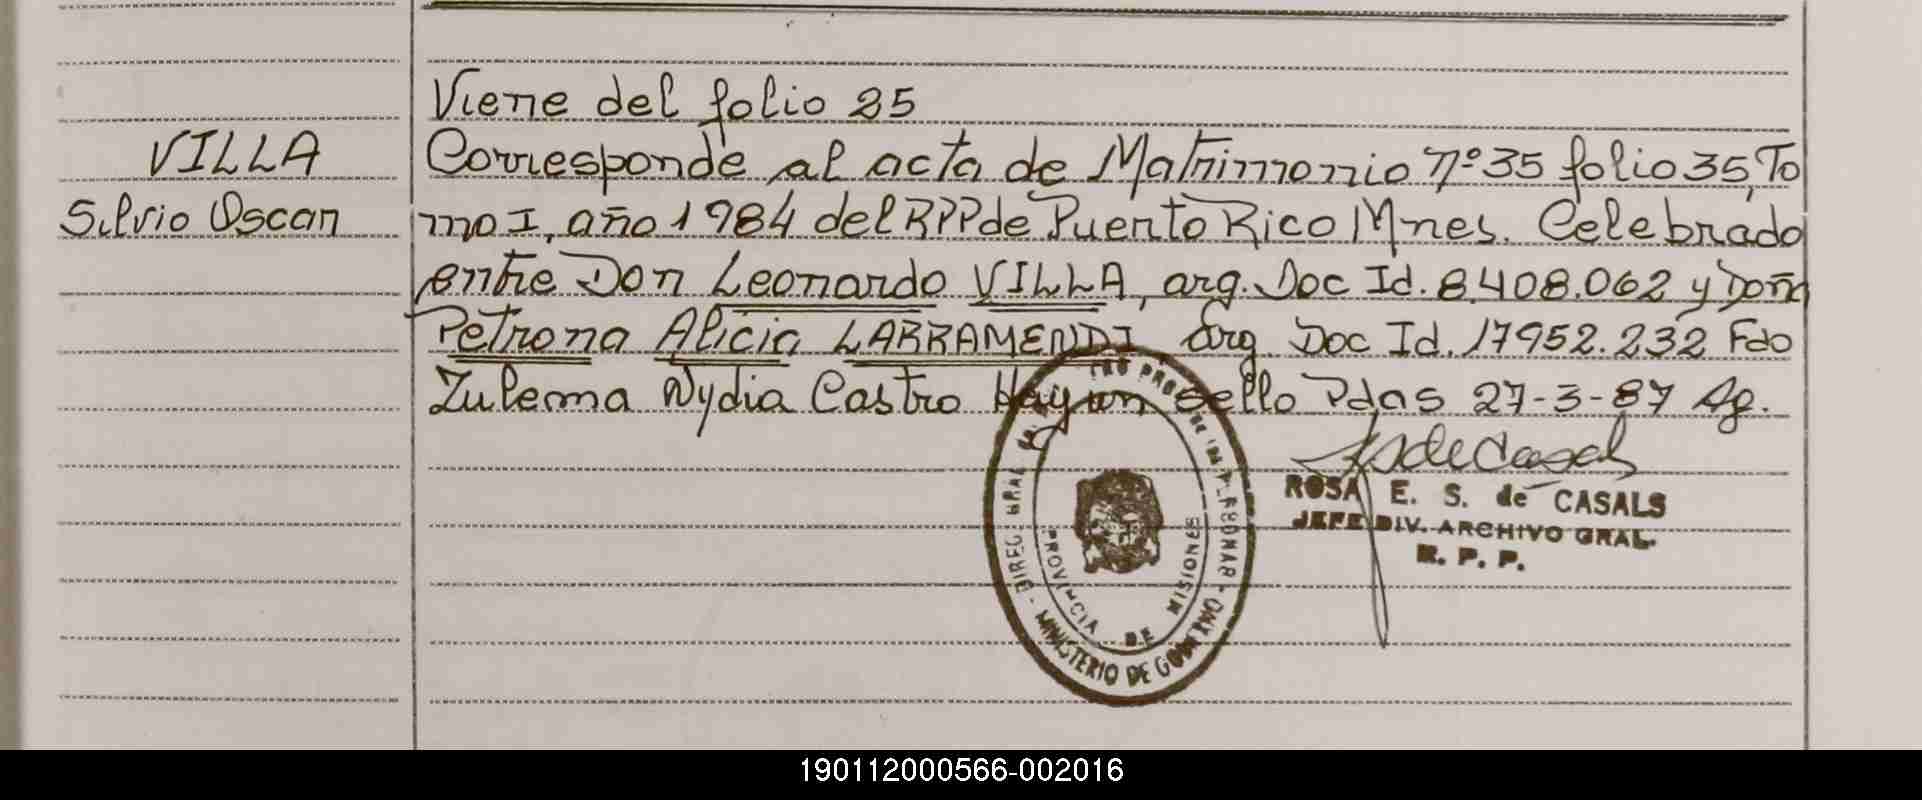 Viene del folio 25
VILLA
Silvio Oscar
Corresponde al acta de Matrimonio nº 35 folio 35, To
mo I, año 1984 del RPP de Puerto Rico Mnes. Celebrado
entre Don Leonardo VILLA, arg. Doc Id. 8.408.062 y Doña
Petrona Alicia LARRAMENDI, arg. Doc Id. 17952.232 Fdo
Zulema Nydia Castro sello Pdas 27-3-87 Ag.
ROSA E. S. de CASALS
JEFE DIV. ARCHIVO GRAL.
R. P. P.
PROVINCIA DE MISIONES
MINISTERIO DE GOBIERNO
190112000566-002016